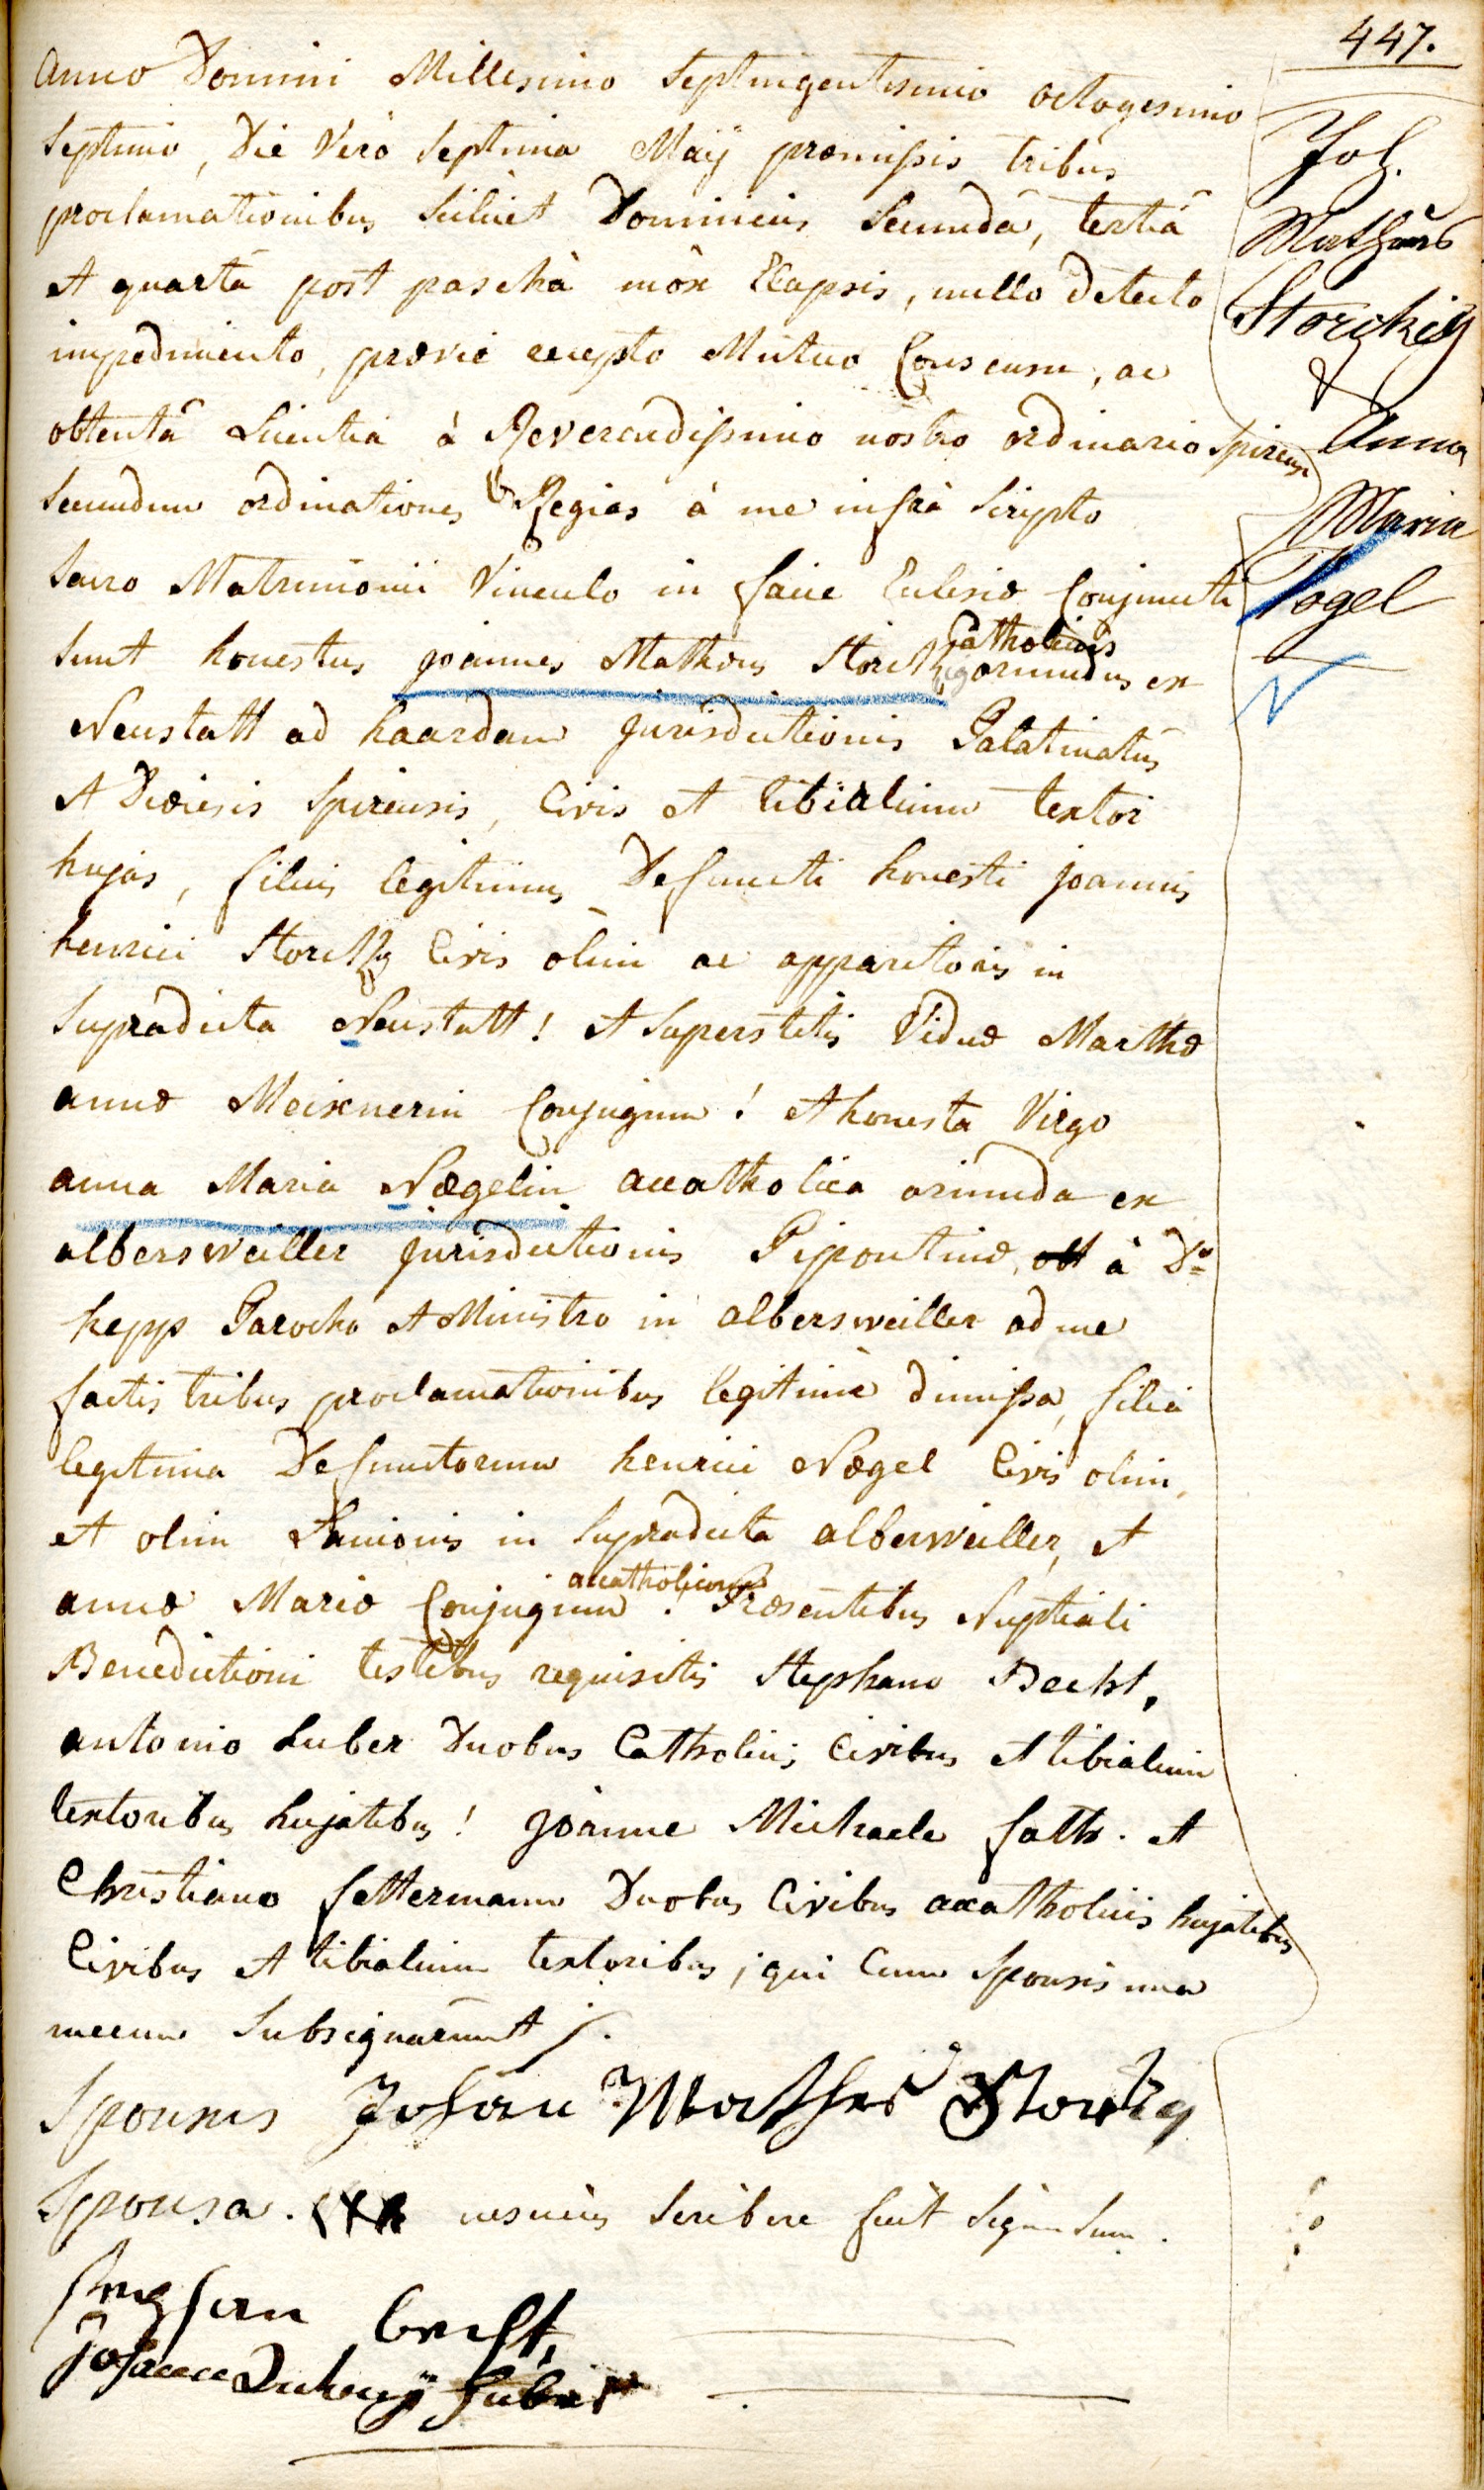 447.
Anno Domini Millesimo Septingentesimo octogesimo
Septimo, Die Vero Septima Maÿ præmissis tribus
proclamationibus Scilicet Dominicis Secundâ, tertiâ
et quartâ post pascha mox Elapsis, nullo detecto
impedimento, prævie accepto Mutuo Consensu, ac
obtentâ Licentia à Reverendissimo nostro ordinario Spirensi
Secundum ordinationes Regias à me infrà Scripto
Sacro Matrimonii Vinculo in facie Ecclesiæ Conjuncti
catholicus
Sunt honestus joannes Mathæus Storckzig oriundus ex
Neustatt ad haardam Jurisdictionis Palatinatûs
et Diœcesis Spirensis, Civis et tibialium textor
hujas, filius legitimus Defuncti honesti joannis
henrici Storckzig Civis olim ac apparitoris in
Supradicta Neustatt! et Superstitis Viduæ Marthæ
annæ Meixnerin Conjugum! et honesta Virgo
anna Maria Nægelin accatholica oriunda ex
albersweiller Jurisdictionis Bipontinæ, à Do
hepp Parocho et Ministro in albersweiller ad me
factis tribus proclamationibus legitimè dimissa, filia
legitima Defunctorum henrici Nægel Civis olim
et olim Lanionis in Supradicta alberweiller, et
accatholicorum
annæ Mariæ Conjugum! Præsentibus Nuptiali
Benedictioni testibus requisitis Stephano Becht,
antonio huber Duobus Catholicis Civibus et tibialium
textoribus hujatibus! Joanne Michaele fath. et
Christiano fettermann Duobus Civibus accatholicis hujatibus
Civibus et tibialium textoribus, qui Cum Sponsis una
mecum Subsignarunt
Sponsus Johan Mathes Storkzig
Sponsa. nescius Scribere fecit Signum Suum.
becht,
Johann Anthony huber
Joh.
Mathæus
Storckzig
&
Anna
Maria
Vogel